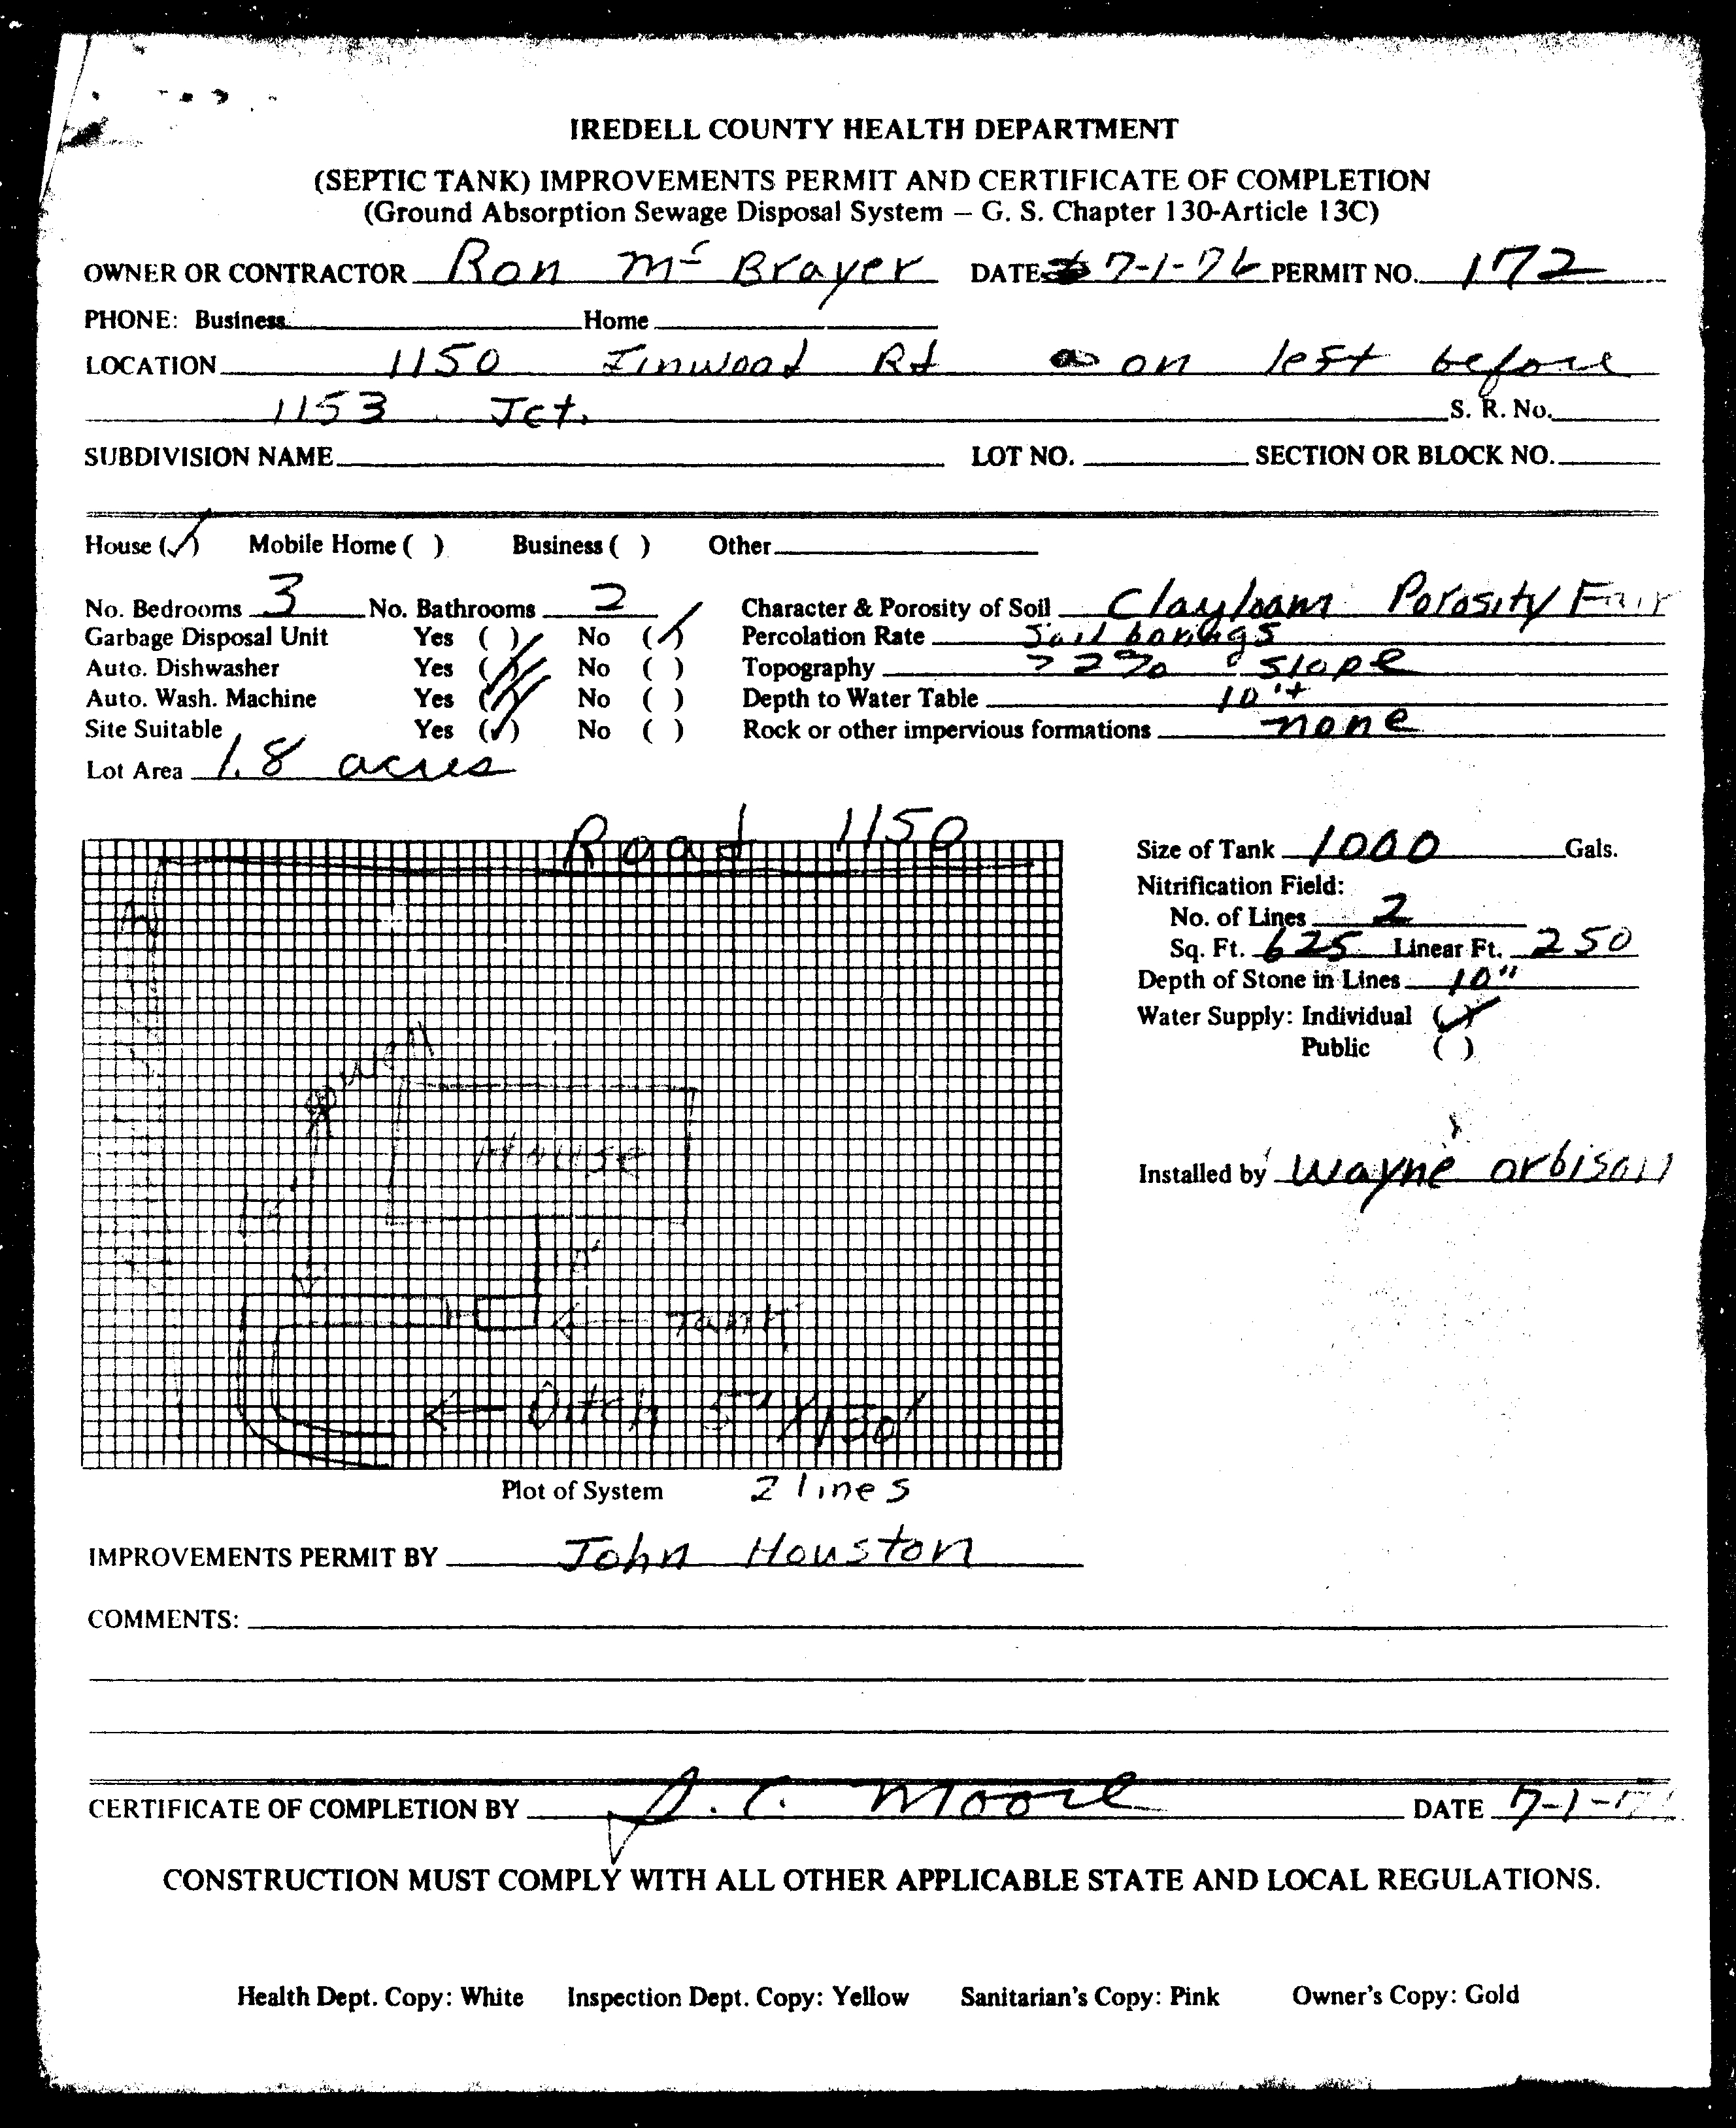 IREDELL COUNTY HEALTH DEPARTMENT
(SEPTIC TANK) IMPROVEMENTS PERMIT AND CERTIFICATE OF COMPLETION
(Ground Absorption Sewage Disposal System – G. S. Chapter 130-Article 13C)
OWNER OR CONTRACTOR Ron Mc Brayer DATE 7-1-76 PERMIT NO. 172
PHONE: Business Home
LOCATION 1150 Rd on left before
1153 Jct. S. R. No.
SUBDIVISION NAME LOT NO. SECTION OR BLOCK NO.
House (✓) Mobile Home ( ) Business ( ) Other
No. Bedrooms 3 No. Bathrooms 2 Character & Porosity of Soil Clayloam Porosity Fair
Garbage Disposal Unit Yes ( ) No (✓) Percolation Rate Soil borings
Auto. Dishwasher Yes (✓) No ( ) Topography >2% slope
Auto. Wash. Machine Yes (✓) No ( ) Depth to Water Table 10'+
Site Suitable Yes (✓) No ( ) Rock or other impervious formations none
Lot Area 1.8 acres
Road 1150
Size of Tank 1000 Gals.
Nitrification Field:
No. of Lines 2
Sq. Ft. 625 Linear Ft. 250
Depth of Stone in Lines 10"
Water Supply: Individual (✓)
Public ( )
well
House
Installed by Wayne Orbison
Tank
Ditch
Plot of System 2 lines
IMPROVEMENTS PERMIT BY John Houston
COMMENTS:
CERTIFICATE OF COMPLETION BY Moore DATE 7-1-
CONSTRUCTION MUST COMPLY WITH ALL OTHER APPLICABLE STATE AND LOCAL REGULATIONS.
Health Dept. Copy: White Inspection Dept. Copy: Yellow Sanitarian's Copy: Pink Owner's Copy: Gold